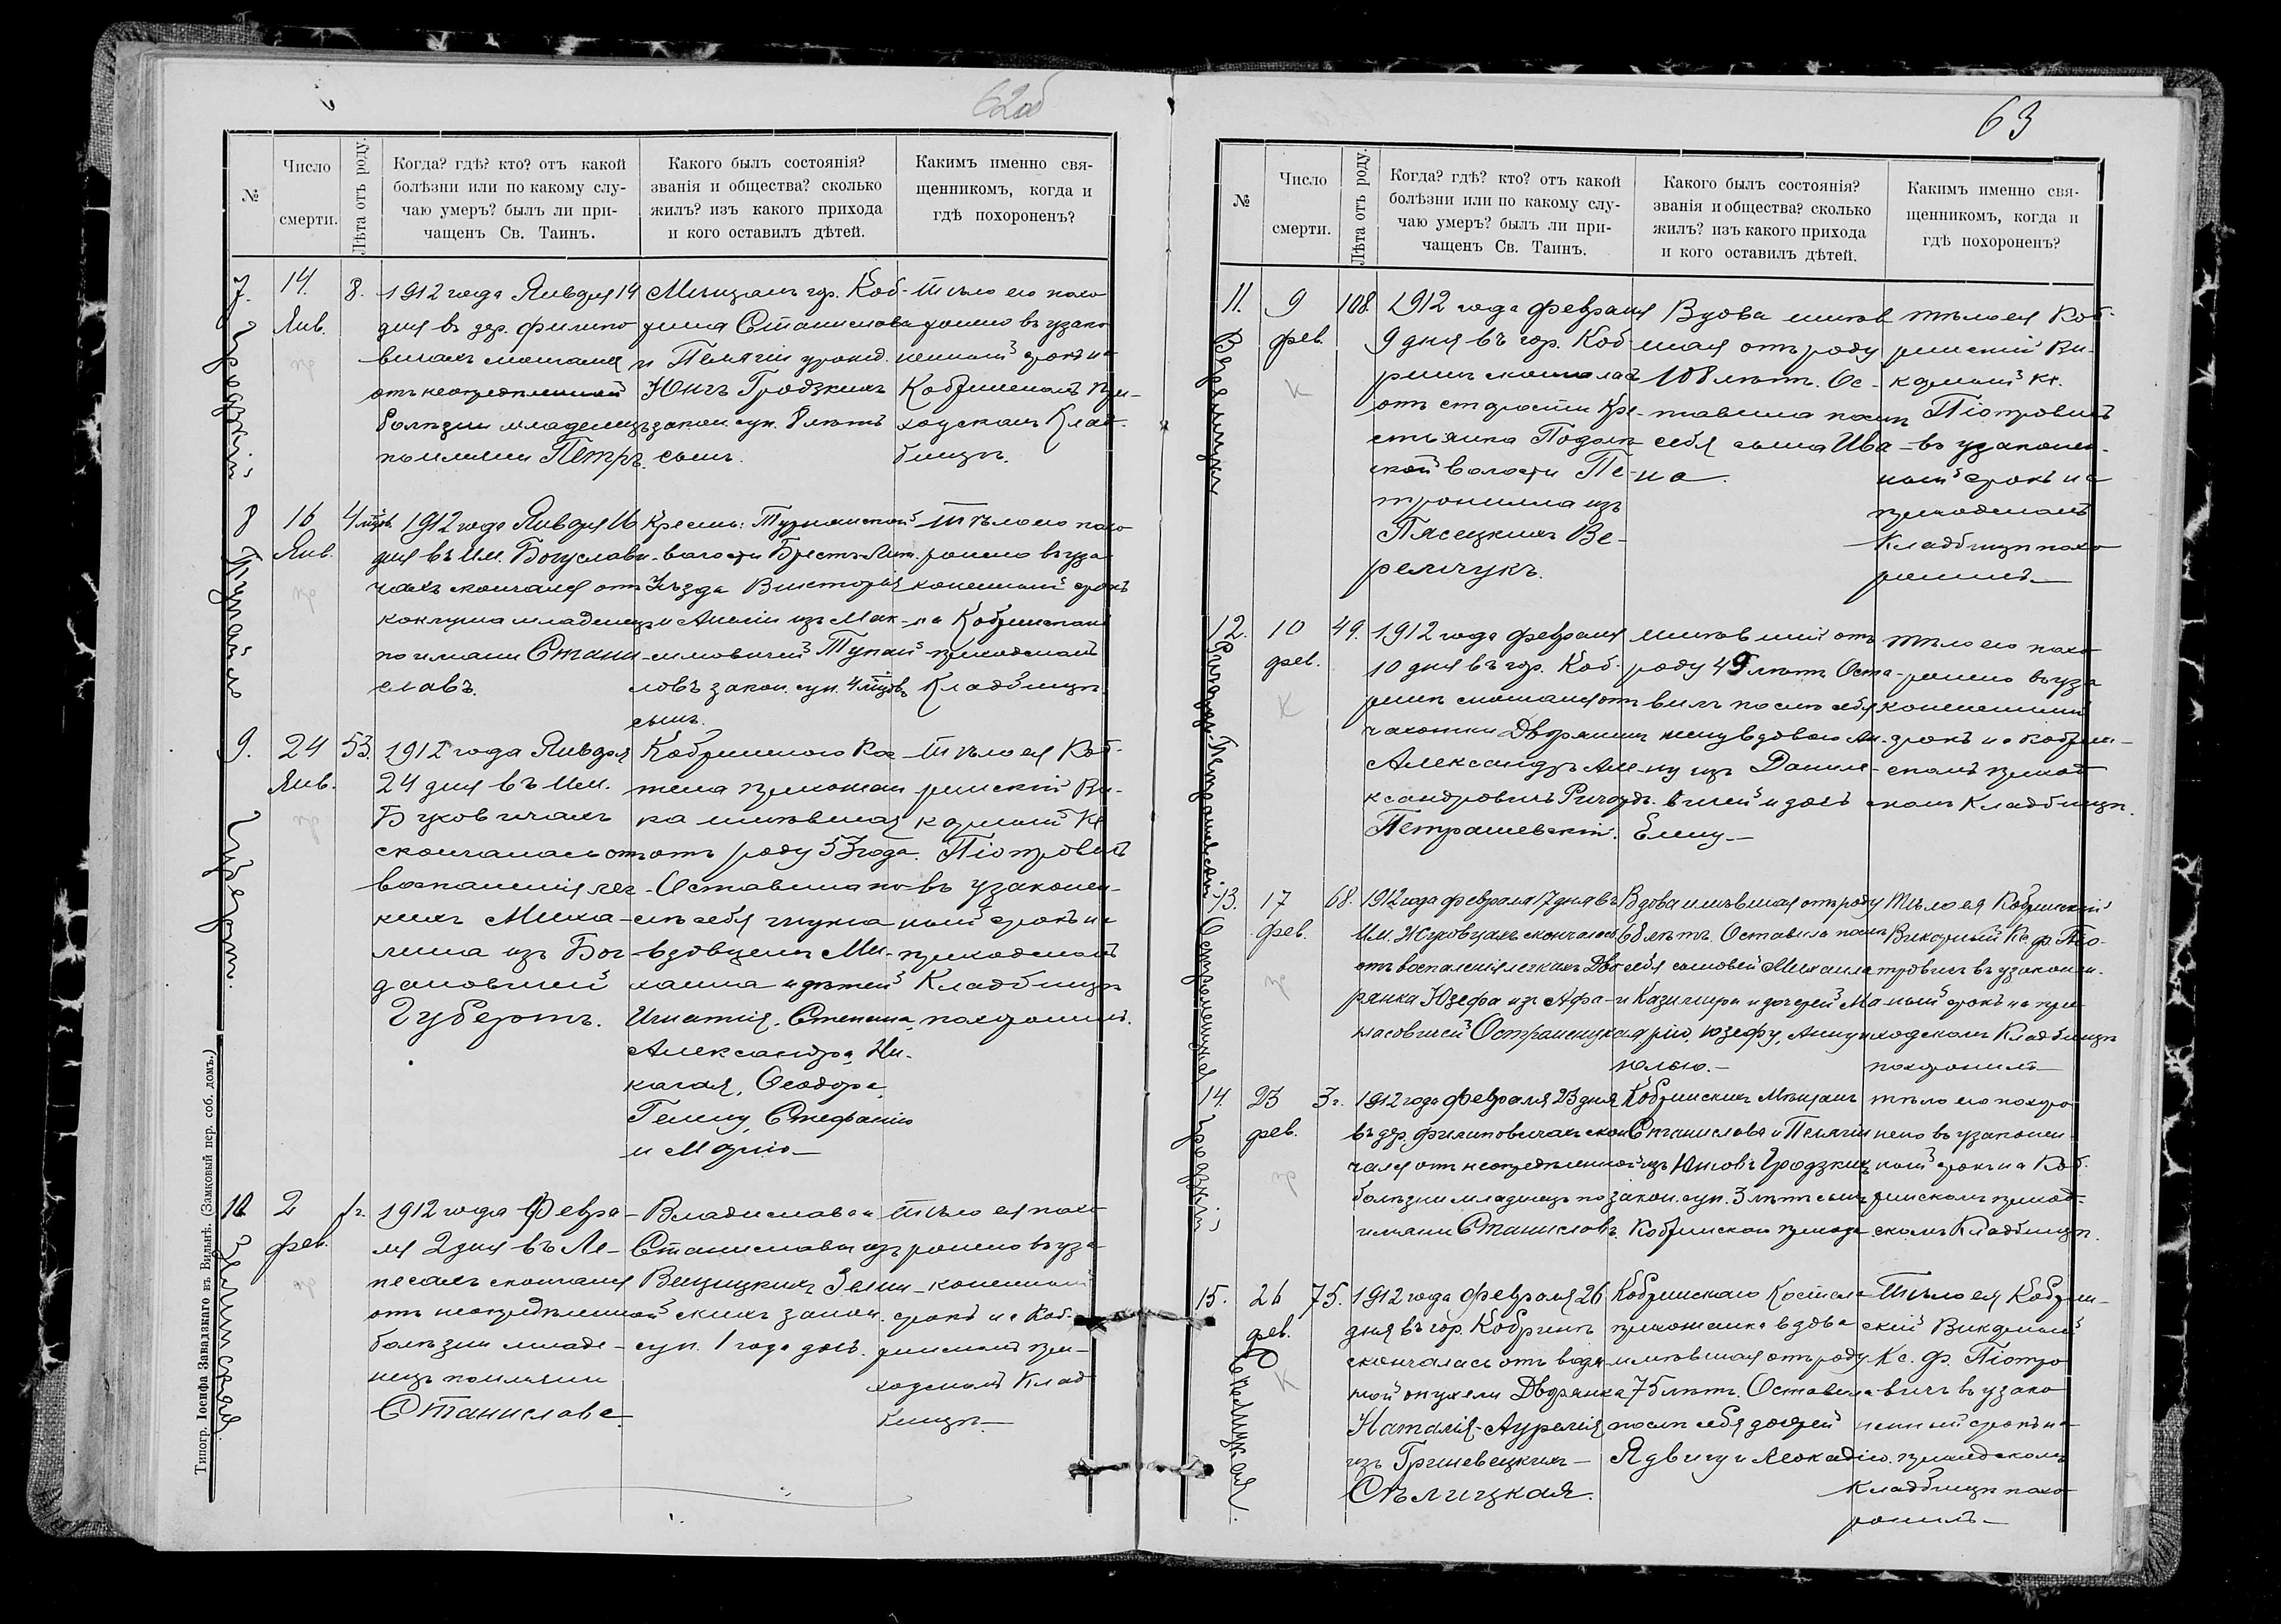 62об
№
Число
смерти.
Лѣта отъ роду.
Когда? гдѣ? кто? отъ какой
болѣзни или по какому слу-
чаю умеръ? былъ ли при-
чащенъ Св. Таинъ.
Какого былъ состоянія?
званія и общества? сколько
жилъ? изъ какого прихода
и кого оставилъ дѣтей.
Какимъ именно свя-
щенникомъ, когда и
гдѣ похороненъ?
7.
Гродзкій
14.
Янв.
пр
8.
1912 года Января 14
дня въ дер. Филипо
вичахъ скончался
отъ неопредѣленной
болѣзни младенецъ
по имени Петръ.
Мѣщанъ гор. Коб-
рина Станислава
и Пелагіи урожд.
Юнчъ Гродзкихъ
закон. суп. 8 лѣтъ
сынъ.
Тѣло его похо
ронено въ узако
ненный срокъ на
Кобринскомъ При-
ходскомъ Клад-
бищѣ.
8
Тупайло
16
Янв.
пр
4 мѣсяц.
1912 года Янв дня 16
дня въ им. Богуслави-
чахъ скончался отъ
коклюша младенецъ
по имени Стани-
славъ.
Крестьян: Турнянской
волости Брестъ-Лит.
Уѣзда Викторія
и Анели изъ Мак-
симовичей Тупай-
ловъ закон. суп. 4 мѣсяцовъ
сынъ.
Тѣло его похо
ронено въ уза
коненный срокъ
на Кобринскомъ
приходскомъ
Кладбищѣ.
9.
Губертъ.
24
Янв.
пр
53.
1912 года Января
24 дня въ им.
Буховичахъ
скончалась отъ
воспаленія лег-
кихъ Миха-
лина изъ Бог-
дановичей
Губертъ.
Кобринскаго Ко
стела прихожан
ка жившая
отъ роду 53 года.
Оставила по-
слѣ себя мужа
вдовцемъ Ми-
хаила и дѣтей
Игнатія, Степана,
Александра, Ни-
колая, Ѳеодора,
Гелену, Стефанію
и Марію—
Тѣло ея Коб-
ринскій Ви-
карный Кс
Піотровичъ
въ узаконен-
ный срокъ на
приходскомъ
Кладбищѣ
похоронилъ.
10.
Зелинская
2
фев.
пр
1 г.
1912 года Февра-
ля 2 дня въ Ле-
песахъ скончался
отъ неопредѣленной
болѣзни младе-
нецъ по имени
Станислава.
Владислава и
Станиславы изъ
Зелин-
скихъ закон.
суп. 1 года дочь.
Тѣло ея похо
ронено въ уза
коненный
срокъ на Коб-
ринскомъ при-
ходскомъ Клад
бищѣ.—
Типогр. Іосифа Завадзкаго въ Вильнѣ. (Замковый пер. соб. домъ.)
63
№
Число
смерти.
Лѣта отъ роду.
Когда? гдѣ? кто? отъ какой
болѣзни или по какому слу-
чаю умеръ? былъ ли при-
чащенъ Св. Таинъ.
Какого былъ состоянія?
званія и общества? сколько
жилъ? изъ какого прихода
и кого оставилъ дѣтей.
Какимъ именно свя-
щенникомъ, когда и
гдѣ похороненъ?
11.
Верем
9
фев.
К
108.
1912 года февраля
9 дня въ гор. Коб-
ринѣ скончалась
отъ старости Кре-
стьянка Подолѣ-
ской волости Пе-
тронилла изъ
Пясецкихъ Ве-
ремчукъ.
Вдова жив
шая отъ роду
108 лѣтъ. Ос-
тавила послѣ
себя сына Ива
на.
Тѣло ея Коб-
ринскій Ви-
карный Кс.
Піотровичъ
въ узаконен-
ный срокъ на
приходскомъ
Кладбищѣ похо
ронилъ—
12.
Ричардъ Петрашевскій
10
фев.
К
49.
1912 года февраля
10 дня въ гор. Коб-
ринѣ скончался отъ
чахотки Дворянинъ
Александръ Але-
ксандровичъ Ричардъ.
Петрашевскій.
жившій отъ
роду 49 лѣтъ Оста-
вилъ послѣ себя
жену вдовою Ан-
ну изъ Даниле-
вичей и дочь
Елену.—
Тѣло его похо
ронено въ уза
коненный
срокъ на Кобрин-
скомъ приход
скомъ Кладбищѣ.
13.
17
фев.
пр
68.
1912 года февраля 17 дня въ
им. Жуховцахъ скончалась
отъ воспаленія легкихъ Дво
рянка Юзефа изъ Афа-
насовичей
Вдова жившая отъ роду
68 лѣтъ. Оставила послѣ
себя сыновей Михаила
и Казимира и дочерей Ма
рію, Юзефу, Анну и
Юлію.—
Тѣло ея Кобринскій
Викарный Кс. ф. Піо-
тровичъ въ узаконен-
ный срокъ на при
ходскомъ Кладбищѣ
похоронилъ—
14.
Гродзкій
23
фев.
пр
3 г.
1912 года февраля 23 дня
въ дер. Филиповичахъ скон
чался отъ неопредѣленной
болѣзни младенецъ по
имени Станиславъ.
Кобринскихъ Мѣщанъ
Станислава и Пелагіи
изъ Юнчовъ Гродзкихъ
закон. суп. 3 лѣтъ сынъ
Кобринскаго прихода
Тѣло его похоро
нено въ узаконен-
ный срокъ на Коб-
ринскомъ приход-
скомъ Кладбищѣ.
15.
Сѣлицкая.
26
фев.
К
75.
1912 года февраля 26
дня въ гор. Кобринѣ
скончалась отъ водя-
ной опухоли Дворянка
Наталія-Аурелія
изъ Гриневецкихъ—
Сѣлицкая.
Кобринскаго Костела
прихожанка вдова
жившая отъ роду
75 лѣтъ. Оставила
послѣ себя дочерей
Ядвигу и Леокадію.
Тѣло ея Кобрин-
скій Викарный
Кс. Ф. Піотро
вичъ въ узако
ненный срокъ на
приходскомъ
Кладбищѣ похо
ронилъ—